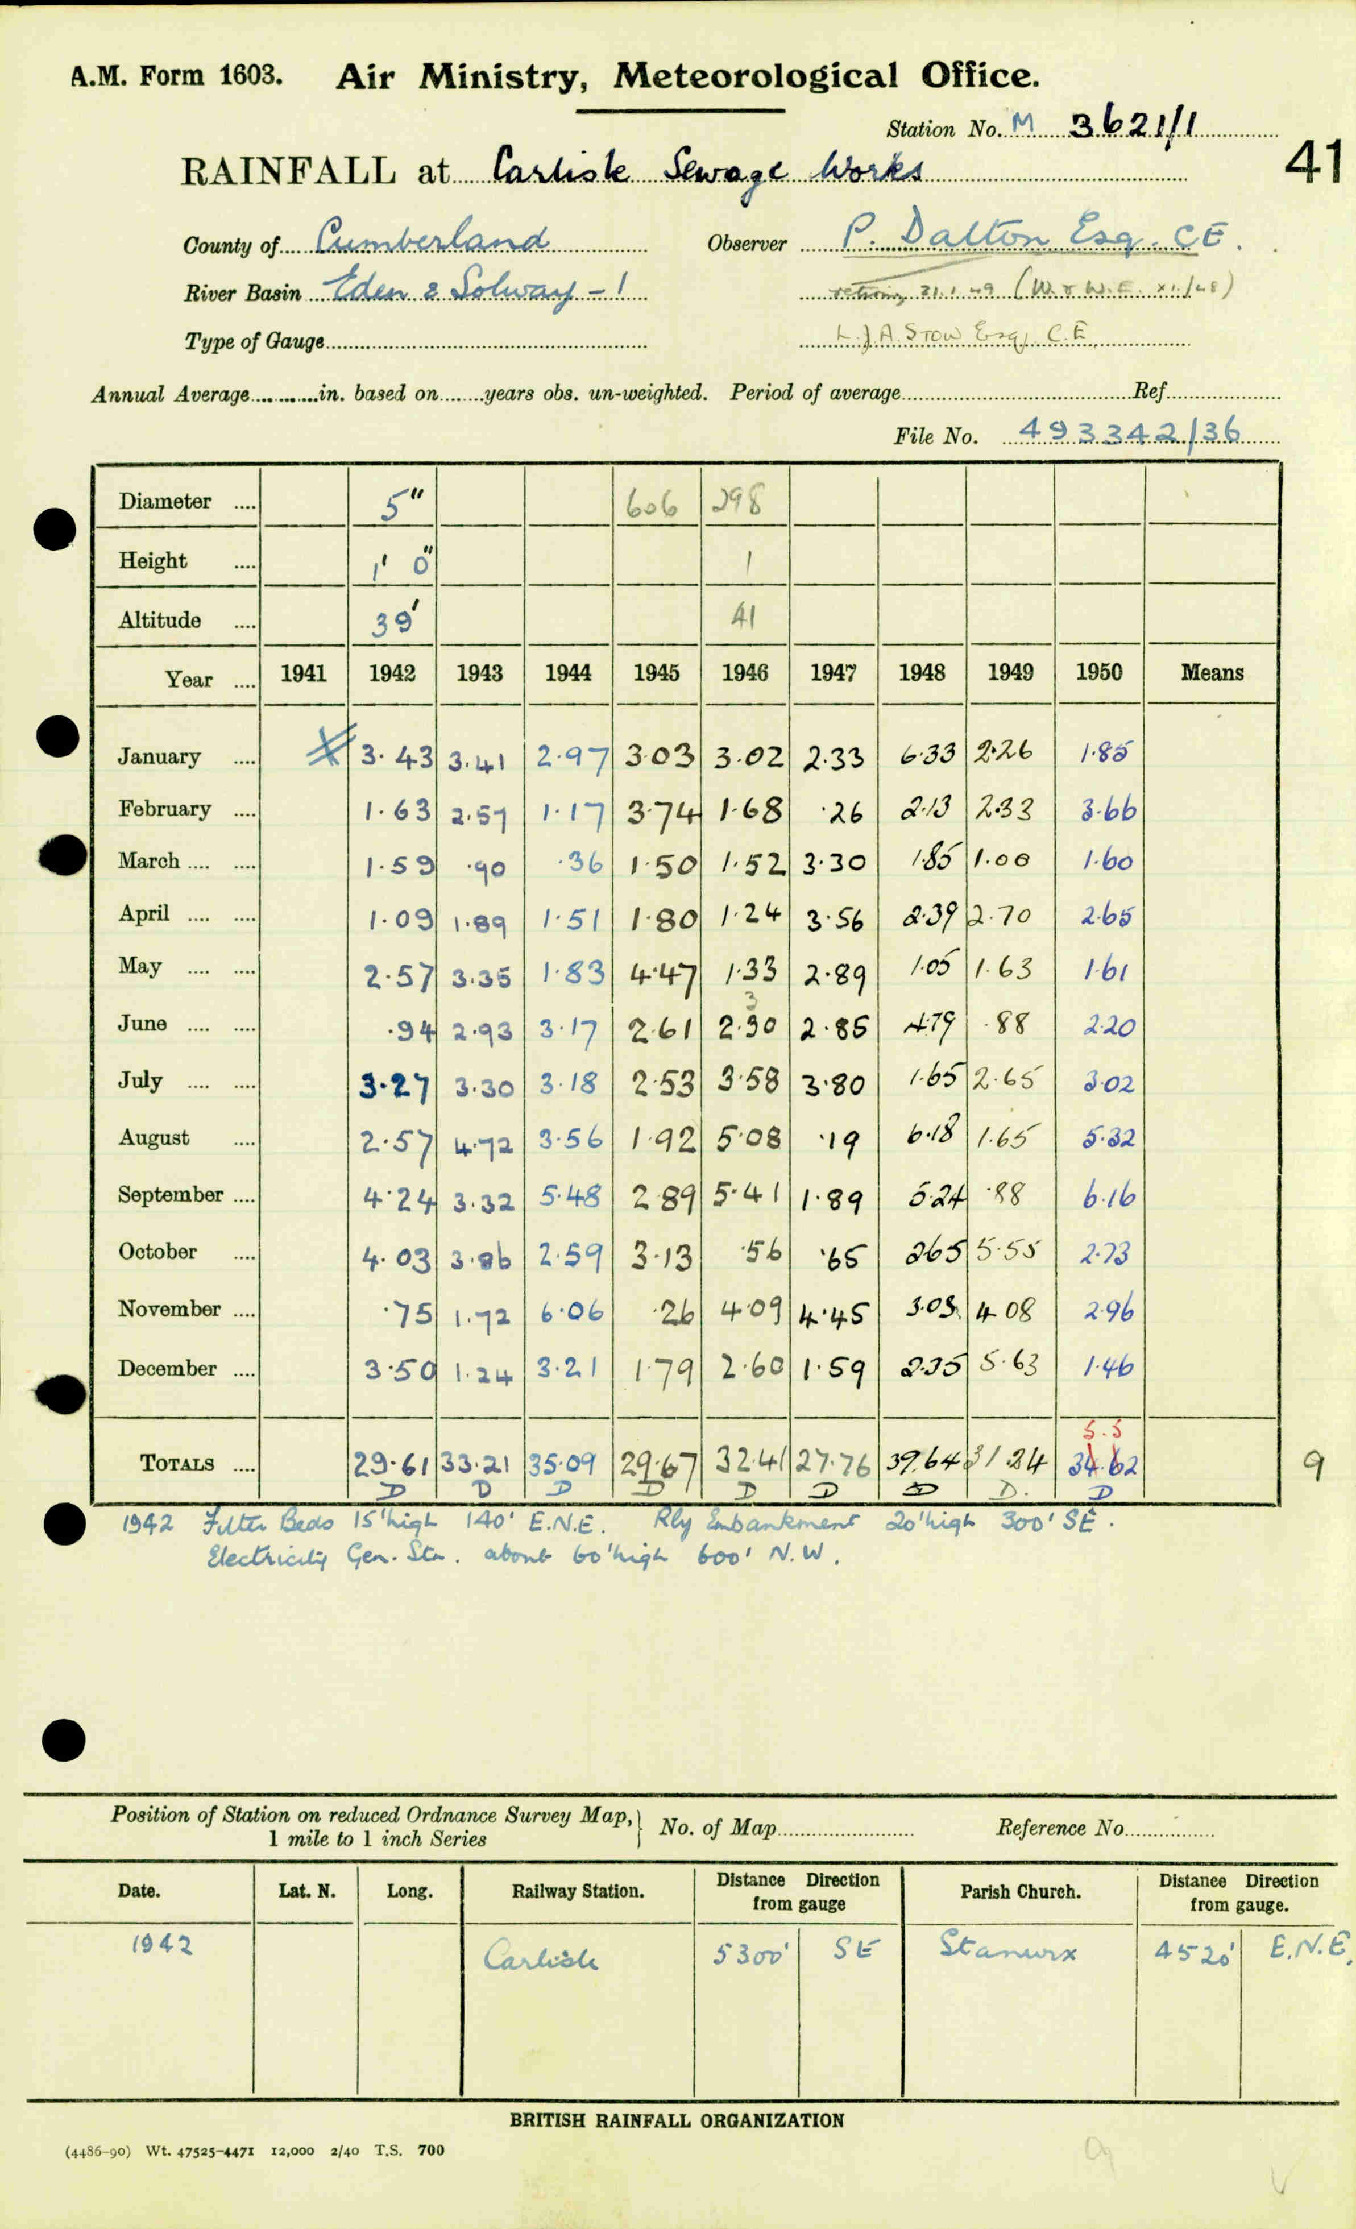 A.M. Form 1603. Air Ministry, Meteorological Office.
Station No. M 3621/1
41
RAINFALL at Carlisle Sewage Works
County of Cumberland Observer P. Dalton Esq. C.E.
River Basin Eden & Solway - 1 retiring 31.1.49 (W. & W.E. XI/48)
Type of Gauge L.J.A. STOW Esq. C.E.
Annual Average in. based on years obs. un-weighted. Period of average Ref.
File No. 493342/36
Diameter 5" 606 298
Height 1' 0" 1
Altitude 39' 41
Year 1941 1942 1943 1944 1945 1946 1947 1948 1949 1950 Means
January 3.43 3.41 2.97 3.03 3.02 2.33 6.33 2.26 1.85
February 1.63 2.57 1.17 3.74 1.68 .26 2.13 2.33 3.66
March 1.59 .90 .36 1.50 1.52 3.30 1.85 1.00 1.60
April 1.09 1.89 1.51 1.80 1.24 3.56 2.39 2.70 2.65
May 2.57 3.35 1.83 4.47 1.33 2.89 1.05 1.63 1.61
3
June .94 2.93 3.17 2.61 2.30 2.85 4.79 .88 2.20
July 3.27 3.30 3.18 2.53 3.58 3.80 1.65 2.65 3.02
August 2.57 4.72 3.56 1.92 5.08 .19 6.18 1.65 5.32
September 4.24 3.32 5.48 2.89 5.41 1.89 5.24 .88 6.16
October 4.03 3.86 2.59 3.13 .56 .65 2.65 5.55 2.73
November .75 1.72 6.06 .26 4.09 4.45 3.03 4.08 2.96
December 3.50 1.24 3.21 1.79 2.60 1.59 2.35 5.63 1.46
5.5
TOTALS 29.61 33.21 35.09 29.67 32.41 27.76 39.64 31.24 34.62 9
D D D D D D D D. D
1942 Filter Beds 15' high 140' E.N.E. Rly Embankment 20' high 300' SE.
Electricity Gen. Stn. about 60' high 600' N.W.
Position of Station on reduced Ordnance Survey Map, 1 mile to 1 inch Series No. of Map Reference No.
Date. Lat. N. Long. Railway Station. Distance Direction from gauge Parish Church. Distance Direction from gauge.
1942 Carlisle 5300' SE Stanwix 4520' E.N.E.
BRITISH RAINFALL ORGANIZATION
(4486-90) Wt. 47525-4471 12,000 2/40 T.S. 700